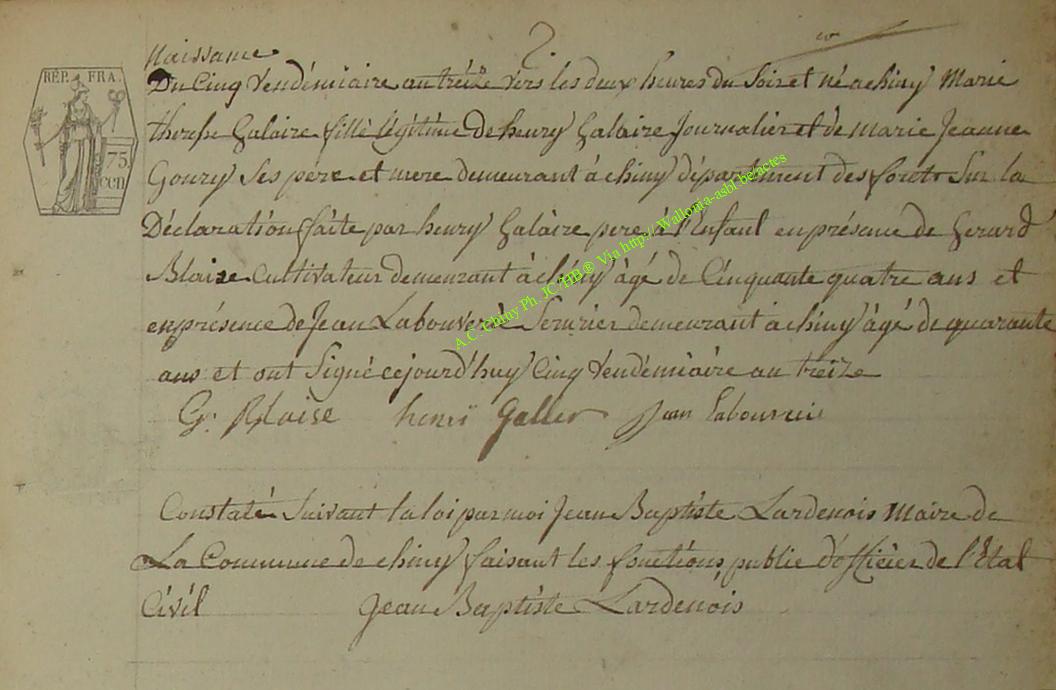 2.
Naissance
RÉP. FRA.
75.
CEN
Du Cinq Vendémiaire an treize vers les deux heures du Soir et né a chiny Marie
therese Galaire fille légitime de henry Galaire Journalier et de Marie Jeanne
Goury Ses pére et mere demeurant à chiny département des forets Sur la
Déclaration faite par henry Galaire pere à l'Enfant en présence de Gerard
Blaise Cultivateur demeurant à chiny âgé de Cinquante quatre ans et
en présence de Jean Labouverie Serurier demeurant à chiny âgé de quarante
ans et ont Signé cejourd'huy Cinq Vendémiaire an treize
G. Blaise henri Galler Jean labouverie
Constaté Suivant la loi par moi Jean Baptiste Lardenois Maire de
La Commune de chiny faisant les fonctions public d'officier de l'Etat
Civil Jean Baptiste Lardenois
A.C. Chiny Ph. JC HB® Via http://Wallonia-asbl-be/actes